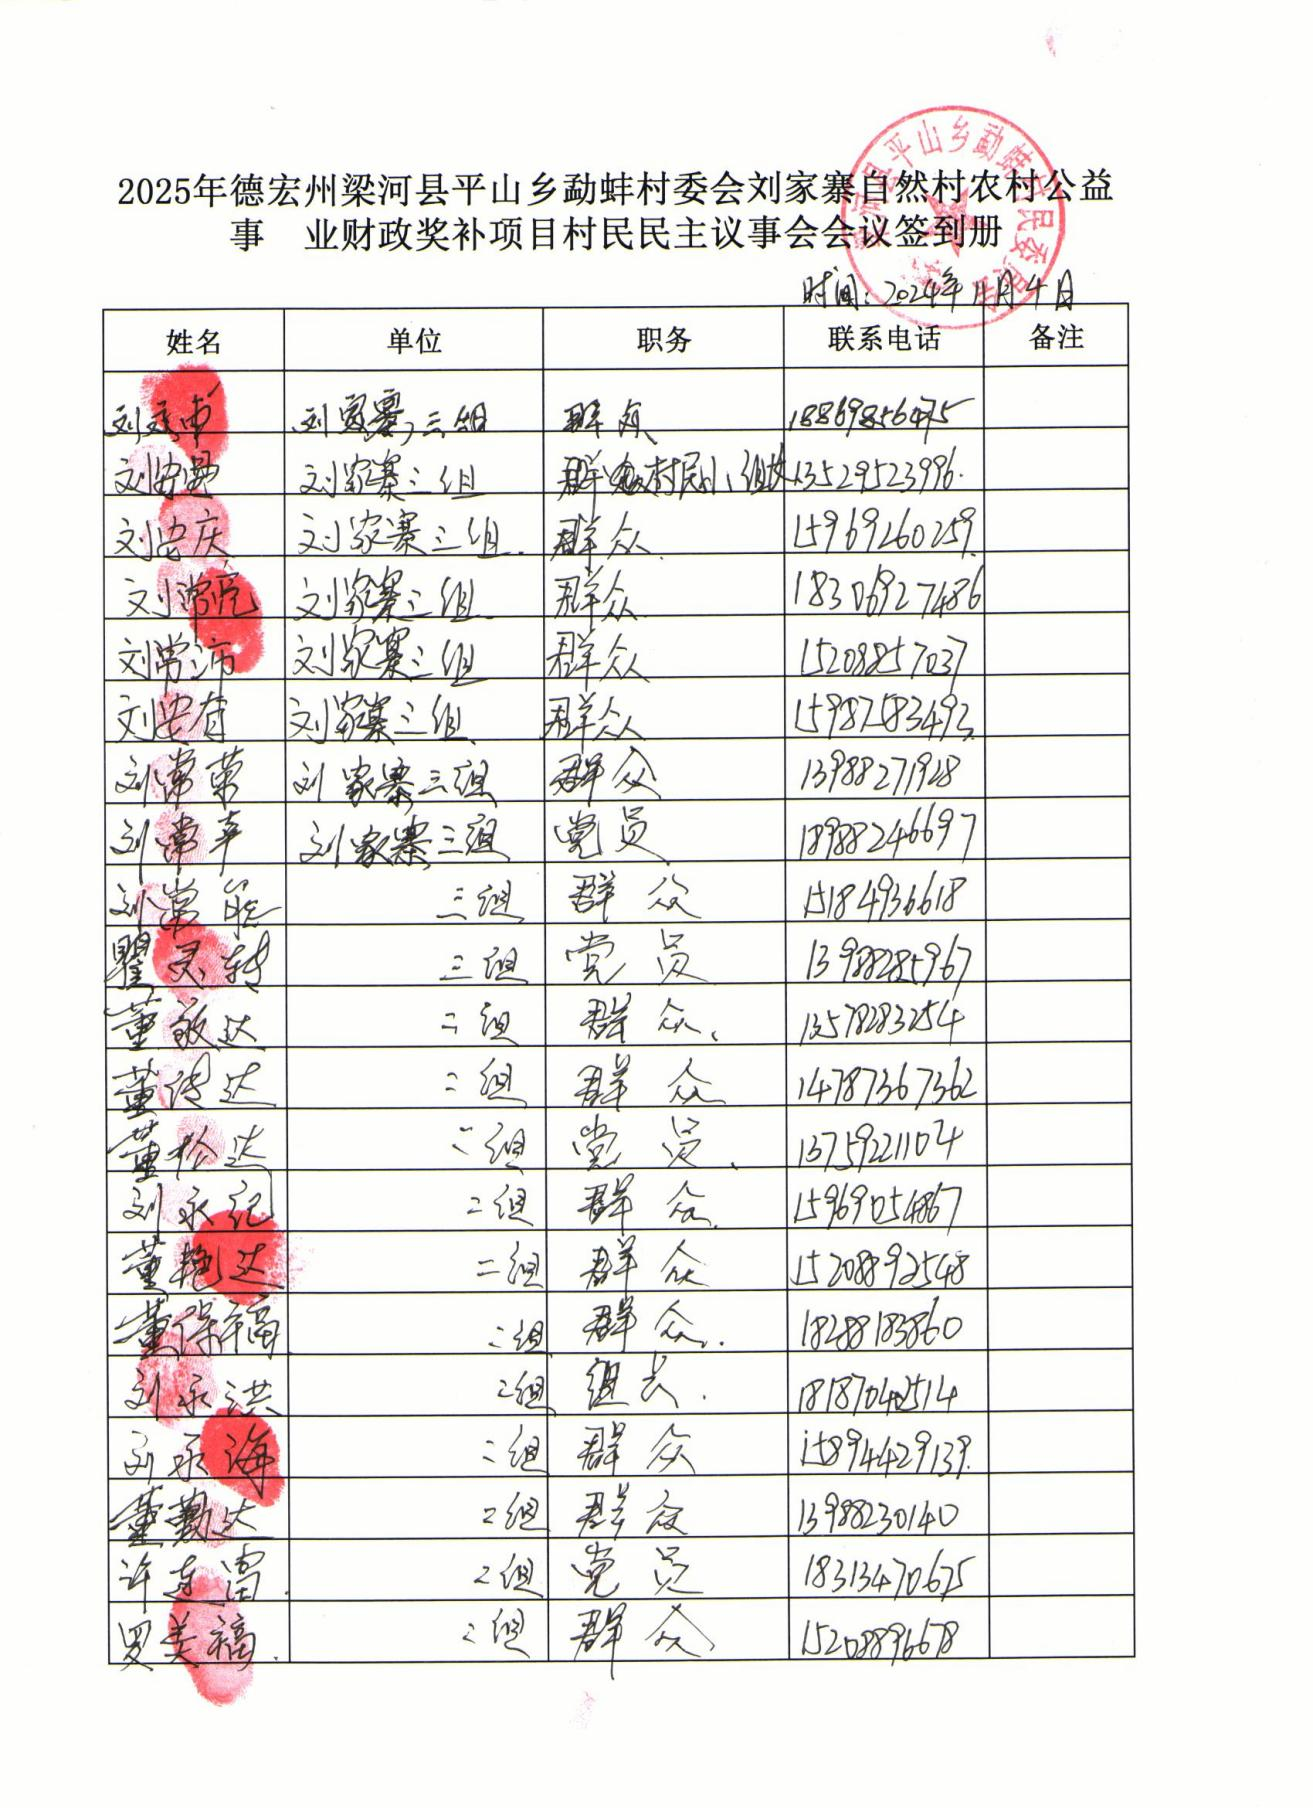 2025年德宏州梁河县平山乡勐蚌村委会刘家寨自然村农村公益
事 业财政奖补项目村民民主议事会会议签到册
时间：2024年11月4日
姓名 单位 职务 联系电话 备注
刘家寨三组 18869856475
刘家寨三组 13529523996.
刘安庆 刘家寨三组. 群众. 15969260259.
刘常亮 刘家寨三组 群众 18306927486
刘常沛 刘家寨三组 群众 15208857037
刘安有 刘家寨三组 群众 15987583492.
刘常荣 刘家寨三组 群众 13988271928
刘常平 刘家寨三组 党员 18988246697
刘常能 三组 群众 15184936618
瞿灵转 三组 党员 13988285967
董敏达 二组 群众、 13578283254
董传达 二组 群众 14787367362
董松达 二组 党员、 13759221104
刘永纪 二组 群众 15969054867
董艳达 二组 群众 15208892548
董保福 二组 群众. 18288183860
刘永洪 2组 组长. 18187042514
刘永海 二组 群众 15894429139.
董勤达 2组 群众 13988230140
许连富. 2组 党员 18313470675
罗美福. 2组 群众 15208896678